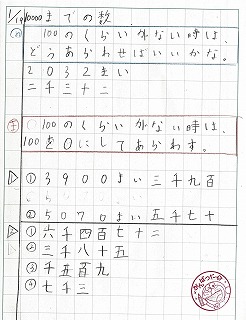 1/19 10000までの数
め 100のくらいがない時は、
どうあらわせばいいかな。
2032まい
二千三十二
ま 100のくらいがない時は、
100を0にしてあらわす。
① 3900まい 三千九百
② 5070まい 五千七十
① 六千四百七十二
② 三千八十五
③ 千五百九
④ 七千三